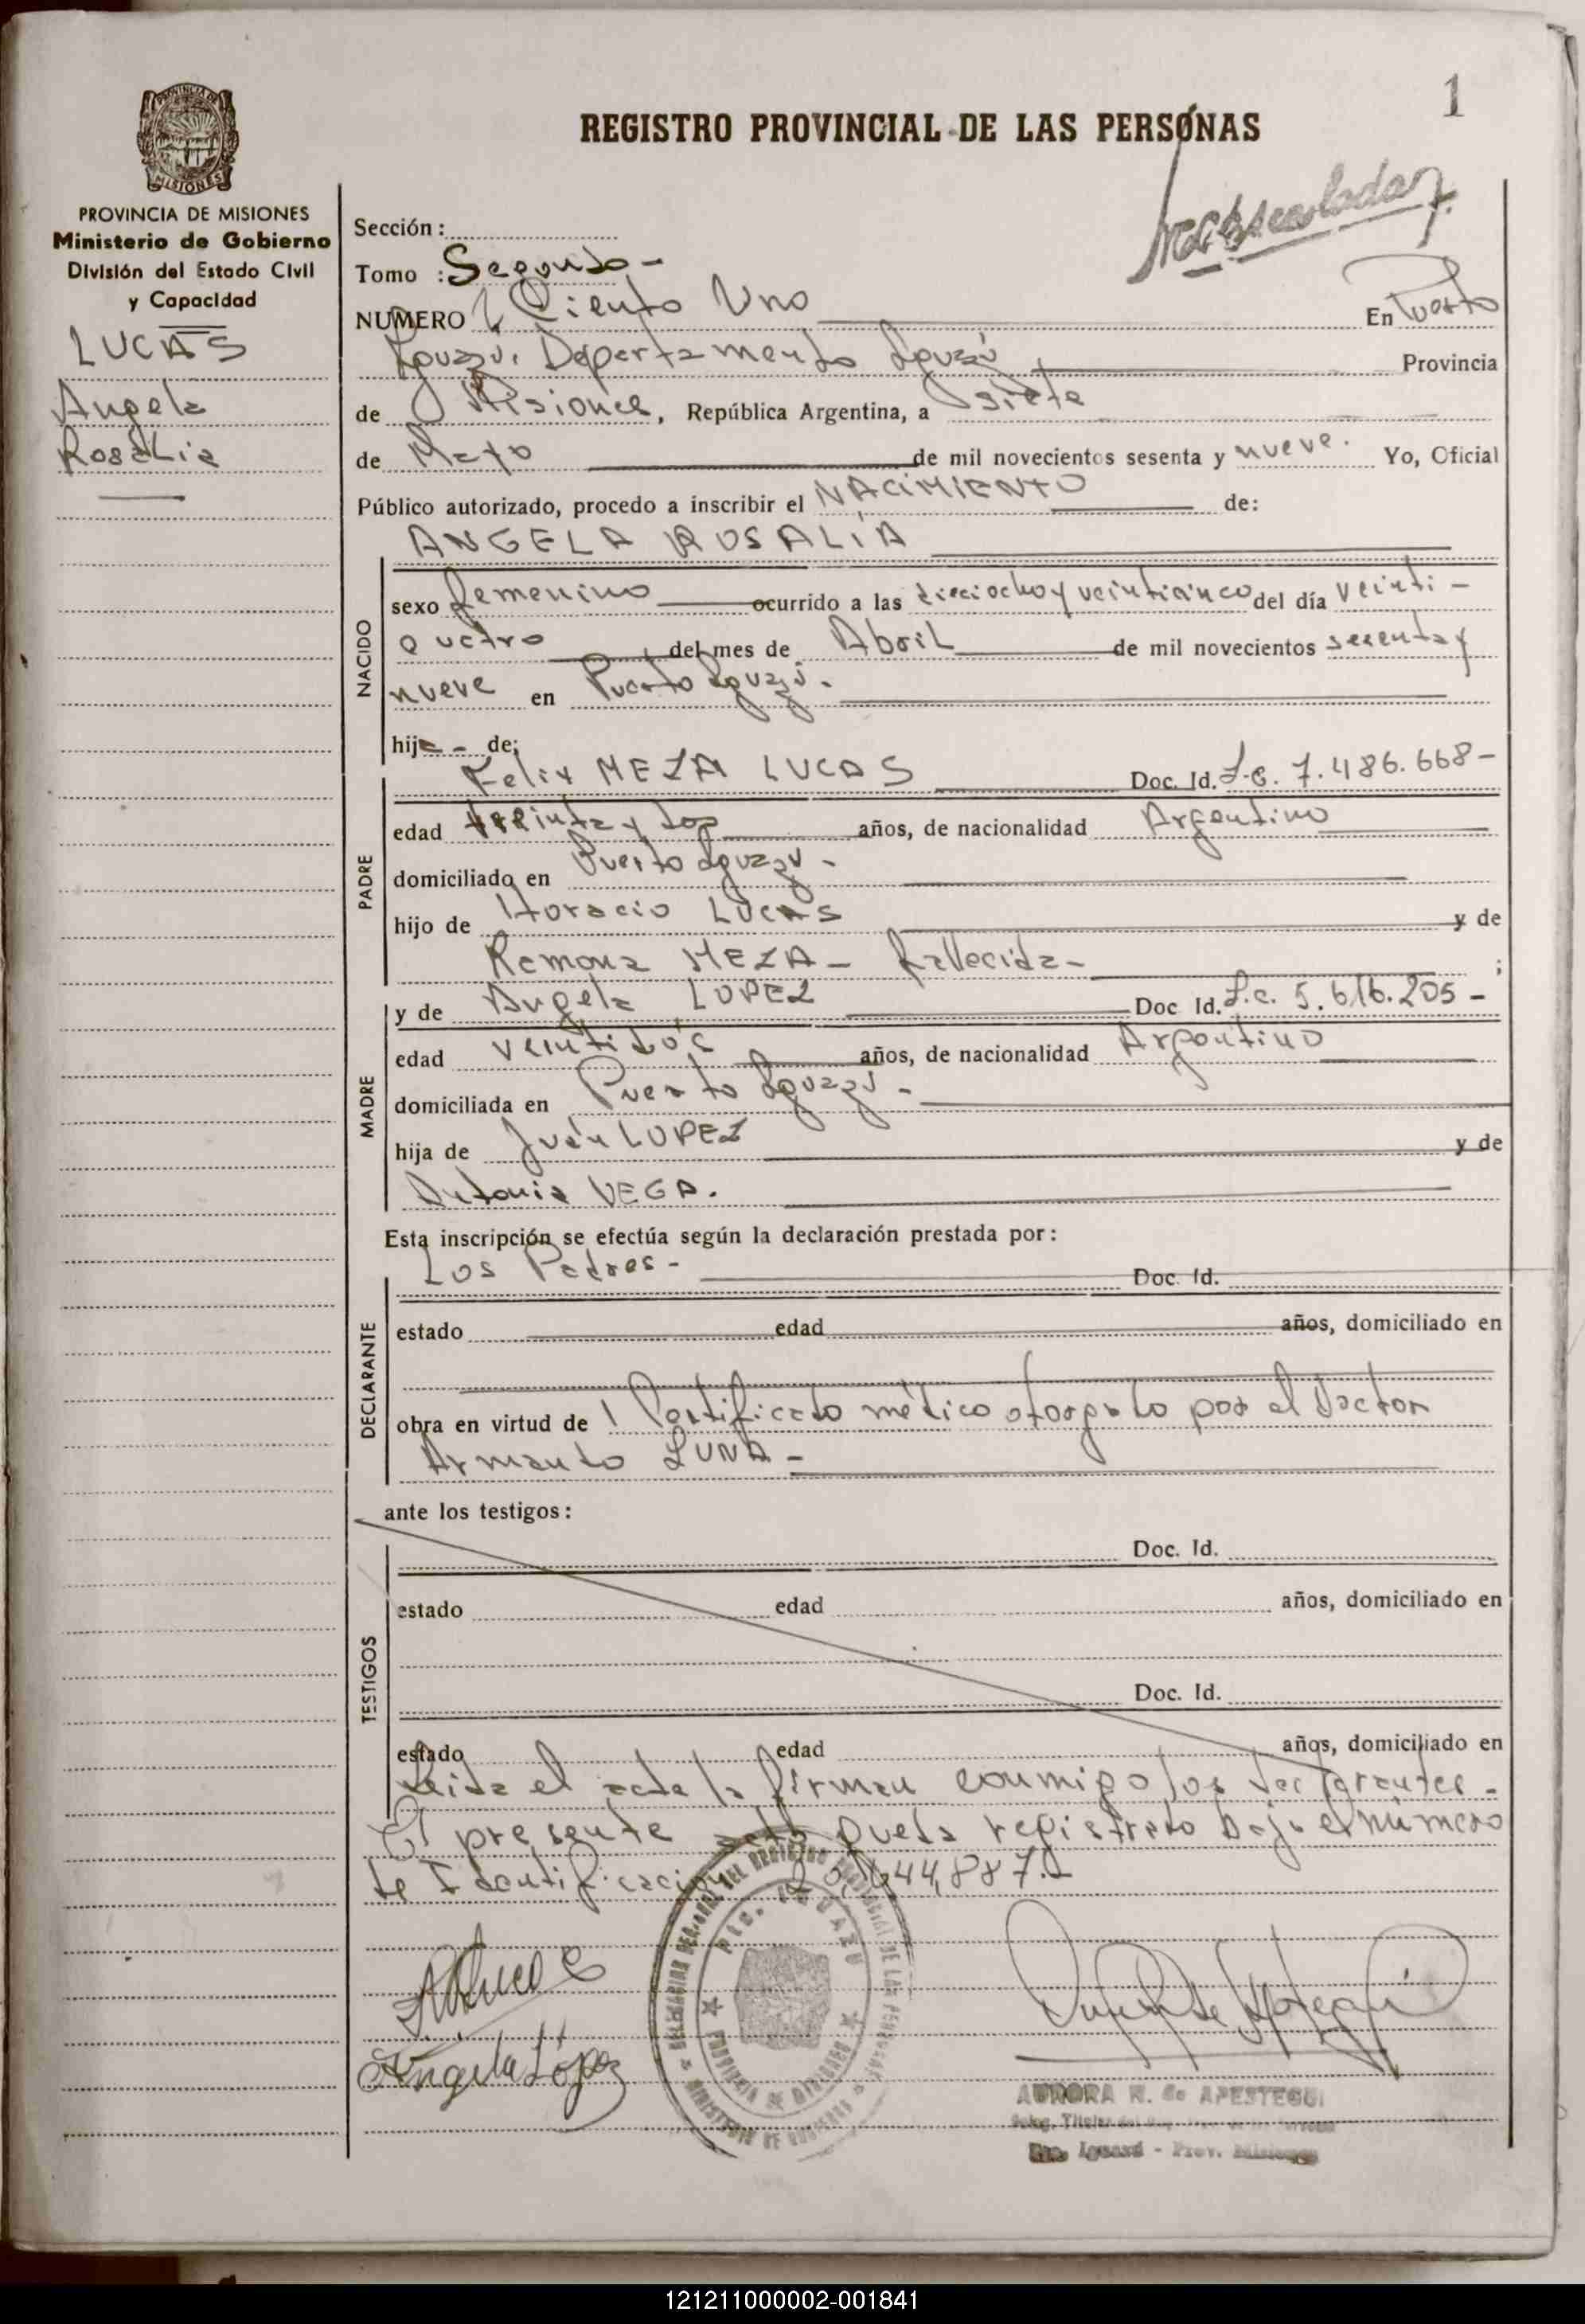 1
REGISTRO PROVINCIAL DE LAS PERSONAS
PROVINCIA DE MISIONES
MISIONES
PROVINCIA DE MISIONES
Ministerio de Gobierno
División del Estado Civil
y Capacidad
LUCAS
Angela
Rosalia
Sección :
Tomo : Segundo -
NUMERO Ciento Uno En Puerto
Iguazú. Departamento Iguazú Provincia
de Misiones, República Argentina, a siete
de Mayo de mil novecientos sesenta y nueve. Yo, Oficial
Público autorizado, procedo a inscribir el NACIMIENTO de:
ANGELA ROSALÍA
NACIDO
sexo femenino ocurrido a las dieciocho y veinticinco del día veinti -
cuatro del mes de Abril de mil novecientos sesenta y
nueve en Puerto Iguazú.
hija - de:
PADRE
Felix MEZA LUCAS Doc. Id. L.E. 7.486.668 -
edad treinta y dos años, de nacionalidad Argentino
domiciliado en Puerto Iguazú -
hijo de Horacio LUCAS y de
Ramona MEZA - fallecida - ;
MADRE
y de Angela LOPEZ Doc Id. L.C. 5.616.205 -
edad veintidós años, de nacionalidad Argentino
domiciliada en Puerto Iguazú -
hija de Juan LOPEZ y de
Antonia VEGA.
Esta inscripción se efectúa según la declaración prestada por:
DECLARANTE
Los Padres - Doc. Id.
estado edad años, domiciliado en
obra en virtud de Certificado médico otorgado por el Doctor
Armando LUNA -
ante los testigos:
TESTIGOS
Doc. Id.
estado edad años, domiciliado en
Doc. Id.
estado edad años, domiciliado en
Leida el acta la firman conmigo los declarantes -
El presente acta queda registrado bajo el número
de Identificación 20,644,887.-
Angela López
AURORA N. de APESTEGUI
Pto. Iguazú - Prov. Misiones
121211000002-001841